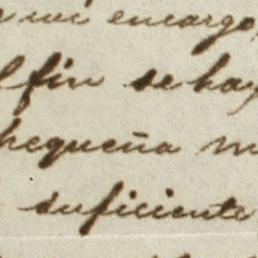 mi encargo,
fin se hay
pequeña m
suficiente